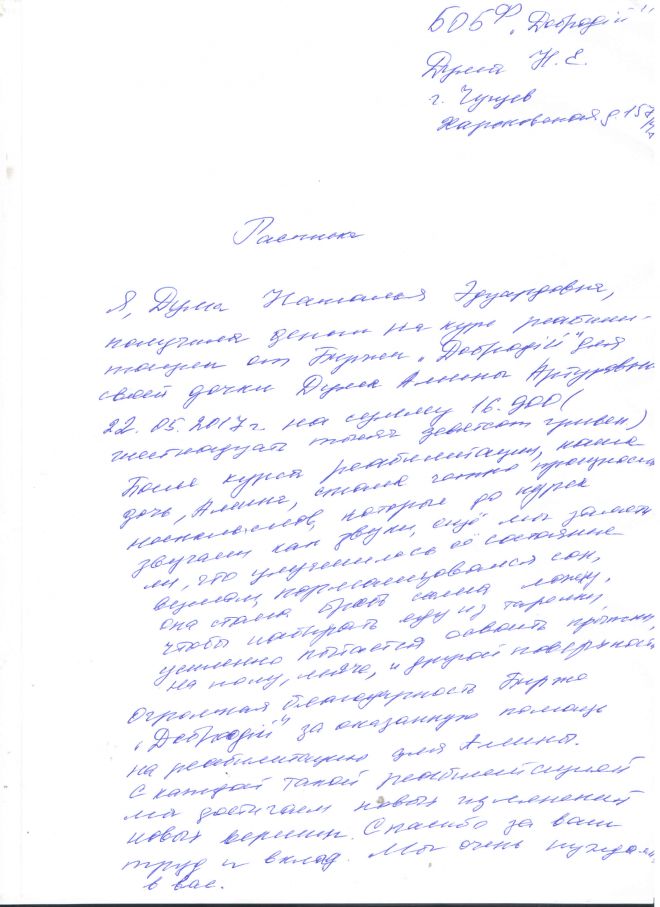 БОБФ „Добродій"
Дума Н. Е.
г. Чугуев
Харьковская д. 157
Расписка
Я, Дума Наталья Эдуардовна,
получила деньги на курс реабили-
тации от Биржи „Добродій" для
своей дочки Думы Алины Артуровны
22. 05. 2017 г. на сумму 16. 900 (
шестнадцать тысяч девятсот гривен)
После курса реабилитации, наша
дочь, Алина, стала четко произносить
несколько слов, которые до курса
звучали как звуки, ещё мы замети
ли, что улучшилось её состояние
в целом, нормализовался сон,
она стала брать сама ложку,
чтобы набирать еду из тарелки,
усиленно пытается освоить прыжки,
на полу, мяче, и другой поверхности
Огромная благодарность Бирже
„Добродій" за оказанную помощь
на реабилитацию для Алины.
С каждой такой реабилитацией
мы достигаем новых изменений
новых вершин. Спасибо за ваш
труд и вклад. Мы очень нуждаемся
в вас.